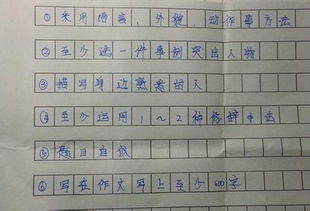 ①采用语言、外貌、动作等方法
②至少选一件事例突出人物
③描写身边熟悉的人
④至少运用1～2种修辞手法
⑤题目自拟
⑥写在作文写上至少600字